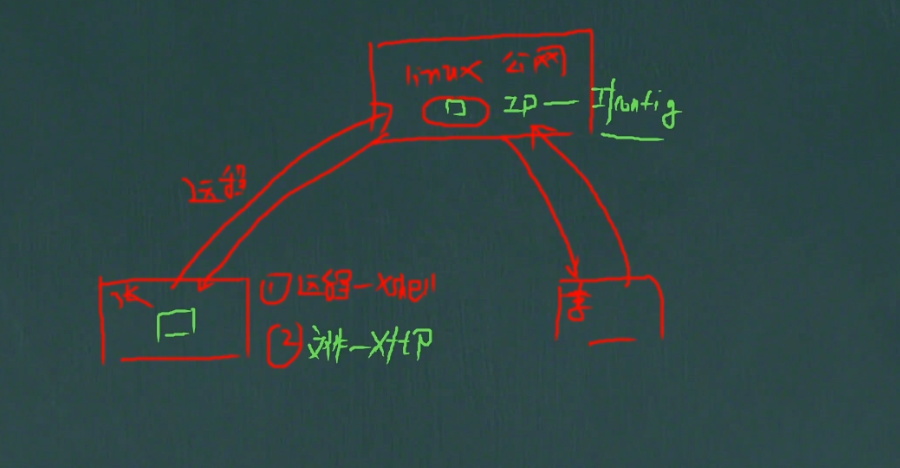 linux 公网
IP — Ifconfig
远程
张
① 远程 — xshell
李
② 文件 — Xftp